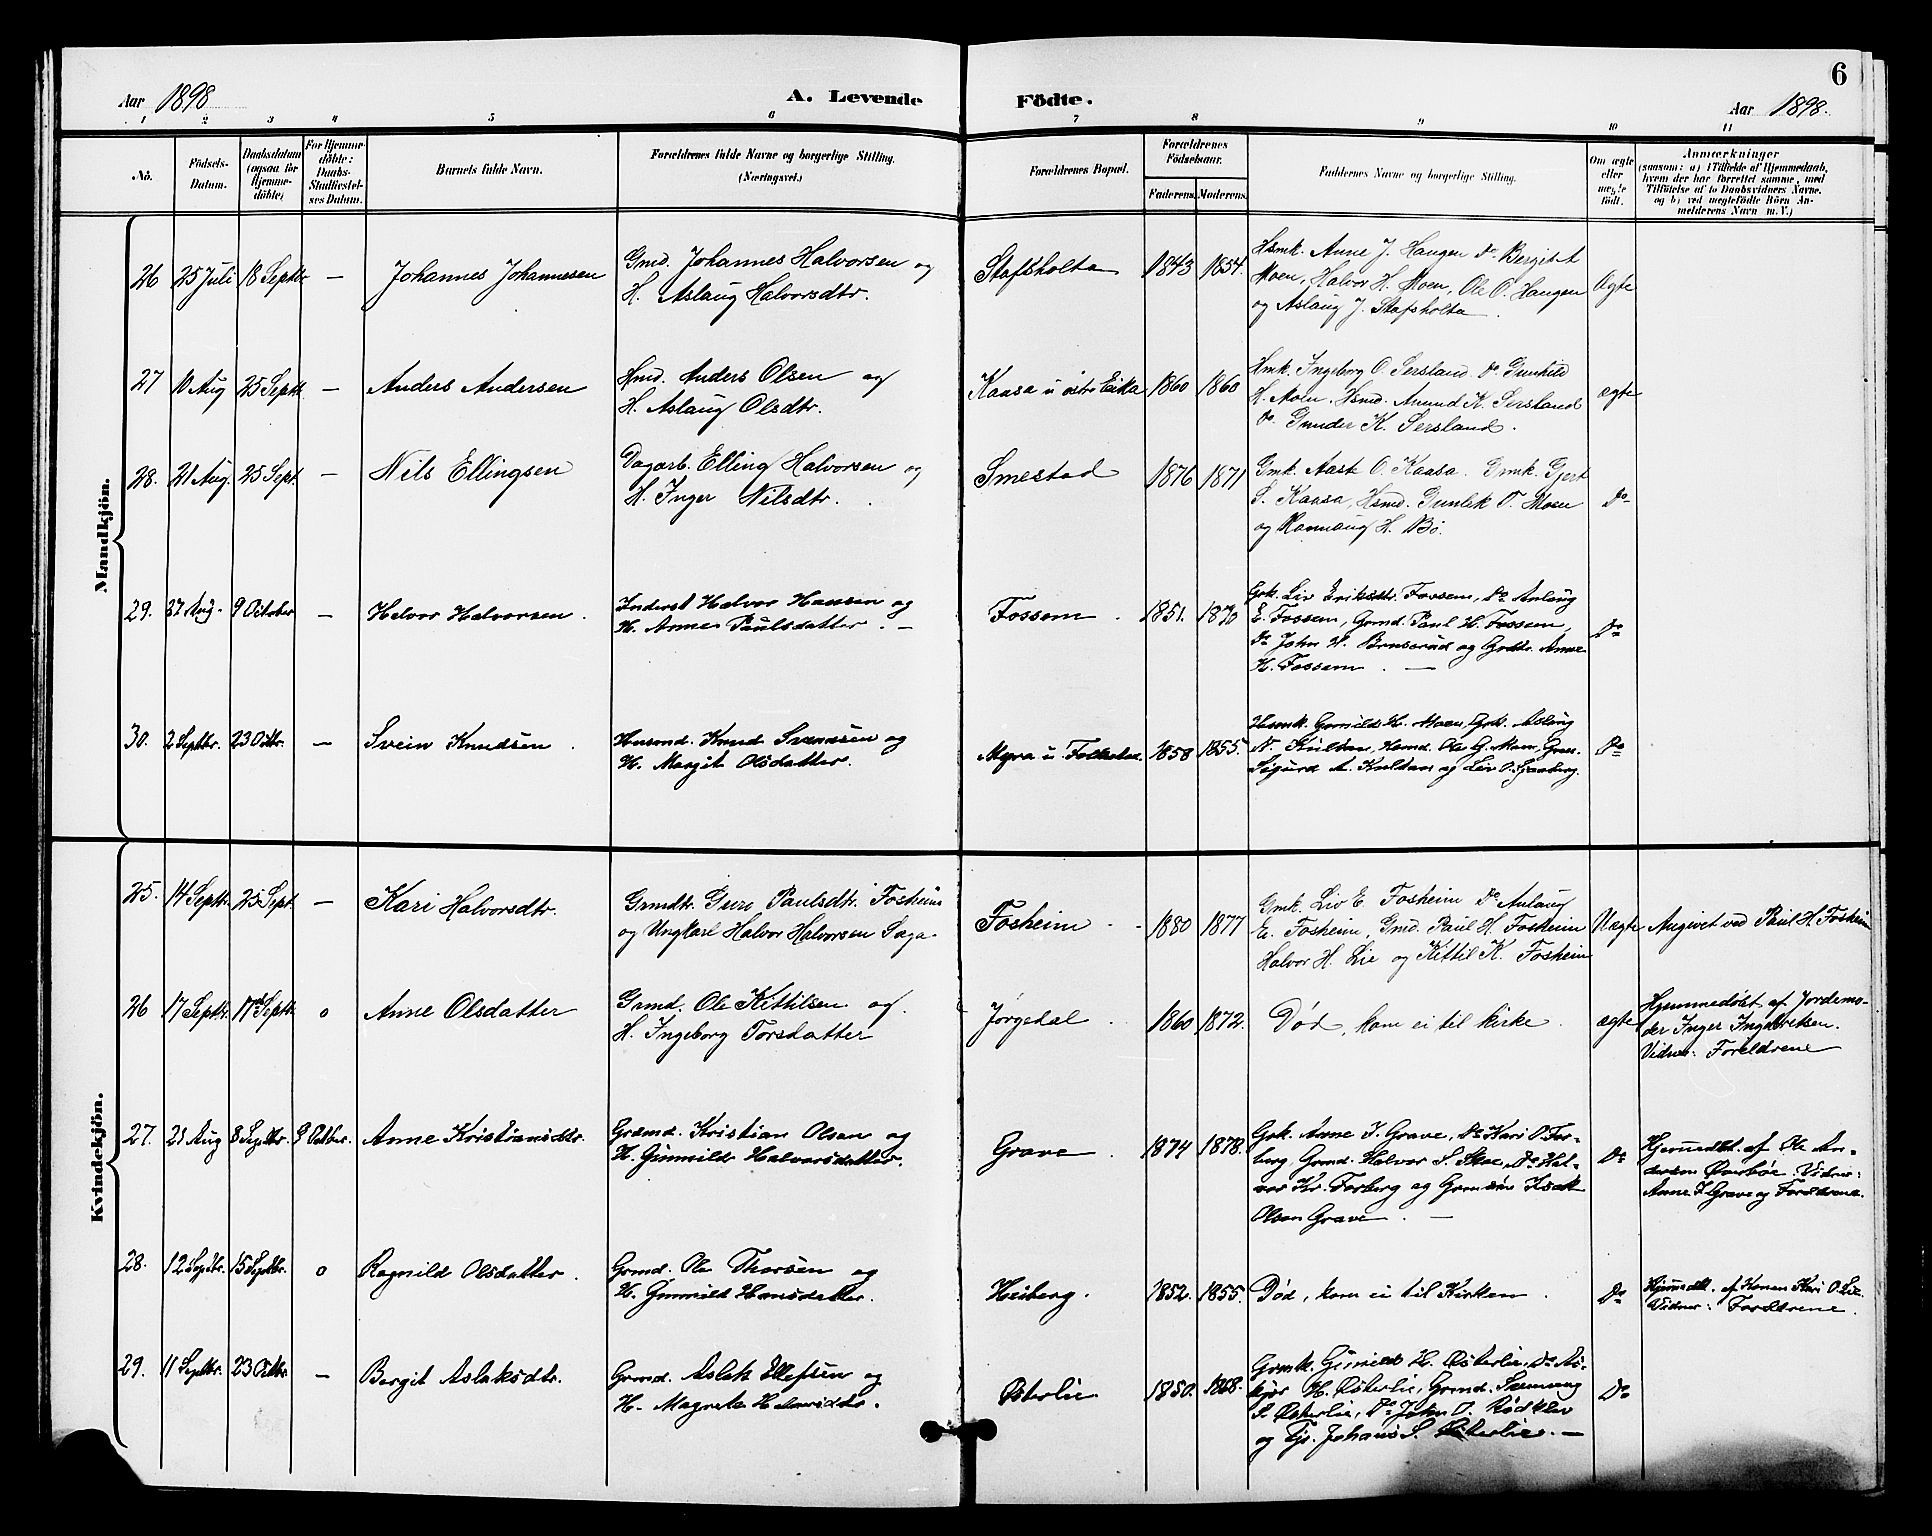 6
Aar 1898
A. Levende Födte.
Aar 1898.
1 2 3 4 5 6 7 8 9 10 11
No.
Födsels-
Datum.
Daabsdatum
(ogsaa for
Hjemme-
döbte)
For Hjemme-
döbte:
Daabs-
Stadfæstel-
ses Datum.
Barnets fulde Navn.
Forældrenes fulde Navne og borgerlige Stilling.
(Næringsvei.)
Forældrenes Bopæl.
Forældrenes
Födselsaar.
Faderens.
Moderens.
Faddernes Navne og borgerlige Stilling.
Om ægte
eller
uægte
födt.
Anmærkninger
(saasom: a) i Tilfælde af Hjemmedaab,
hvem der har forrettet samme, med
Tilföielse af to Daabsvidners Navne.
og b) ved uegtefödte Börn An-
melderens Navn m. V.)
Mandkjön.
26 25 Juli 18 Septbr — Johannes Johannesen
Gmd. Johannes Halvorsen og
H. Aslaug Halvorsdtr.
Stafsholta 1843 1854.
Hsmk. Anne J. Haugen Do Bergit
Moen, Halvor H. Moen, Ole O. Haugen
og Aslaug J. Stafsholta.
Ægte
27 10 Aug 25 Septbr — Anders Andersen
Hmd. Anders Olsen og
H. Aslaug Olsdtr.
Kaasa u östre Eika 1860 1860
Hmk. Ingeborg O. Sersland. Do Gunhild
H. Moen, Hsmd. Amund K. Sersland
Do. Gunder K. Sersland.
ægte
28. 21 Aug. 25 Sept. — Nils Ellingsen
Dagarb. Elling Halvorsen og
H. Inger Nilsdtr.
Smestad 1876 1871
Gmk. Aaste O. Kaasa. Gmk. Gjert
S. Kaasa, Hsmd. Gunlek O. Moen
og Rannaug H. Bö.
Do
29. 27 Aug. 9 October — Halvor Halvorsen.
Inderst Halvor Hansen og
H. Anne Paulsdatter. —
Fossem. 1851. 1870
Grk. Liv Eriksdtr. Fossem, Do Anlaug
E. Fossem, Grmd. Paul H. Fossem,
Do John H. Brnserud og Grdtr. Anne
K. Fossem. —
Do
30. 2 Septbr. 23 Octbr. — Svein Knudsen.
Husmd. Knud Svennsen og
H. Margit Olsdatter.
Myra u. Folkestad. 1858 1855.
Hsmk. Gunild H. Moen, Grk. Aslaug
N. Kultan, Hsmd. Ole G. Moen, Grm.
Sigurd A. Kultan og Liv O.
Do
Kvindekjön.
25. 14 Septbr. 25 Sept. — Kari Halvorsdtr.
Grmdtr. Guro Paulsdtr. Fosheim
og Ungkarl Halvor Halvorsen Saga.
Fosheim. 1880 1877
Gmk. Liv E. Fosheim Do Anlaug
E. Fosheim, Gmd. Paul H. Fosheim
Halvor H. Lie og Kittil K. Fosheim
Uægte
Angivet ved Paul H. Fosheim
26 17 Septbr 17de Septbr o Anne Olsdatter
Grmd. Ole Kittilsen og
H. Ingeborg Torsdatter
Jørgedal. 1860 1872.
Død, kom ei til kirke.
ægte
Hjemmedøbt af Jordemo-
der Inger Ingebretsen.
Vidner: Foreldrene
27. 21 Aug 8 Septbr. 9 Octber. Anne Kristiansdtr.
Grdmd. Kristian Olsen og
H. Gunnild Halvorsdatter.
Grave. 1874 1878.
Grk. Anne I. Grave, Do Kari O For-
berg, Grmd. Halvor S. Skoe, Do Hal-
vor Kr. Forberg og Grmsøn Isak
Olsen Grave. —
Do
Hjemmedbt. af Ole An-
dersen Øverbøe. Vidner:
Anne I Grave og Forældrene.
28. 12 Septbr. 15 Septbr. o Ragnild Olsdatter.
Grmd. Ole Thorsen og
H. Gunnild Hansdatter.
Heiberg. 1852. 1855.
Død, kom ei til Kirken.
Do
Hjemmedbt. af Konen Kari O. Lie.
Vidner: Forældrene.
29. 11 Septbr. 23 Octbr — Bergit Aslaksdtr.
Grmd. Aslak Ellefsen og
H. Magrete Halvorsdtr.
Østerlie 1850. 1868.
Grmk. Gunnild H. Østerlie, Do As-
kjer H. Østerlie, Grmd. Sveinung
S. Østerlie, Do John O. Rødkleiv
og Tjs. Johans S. Østerlie. —
Do